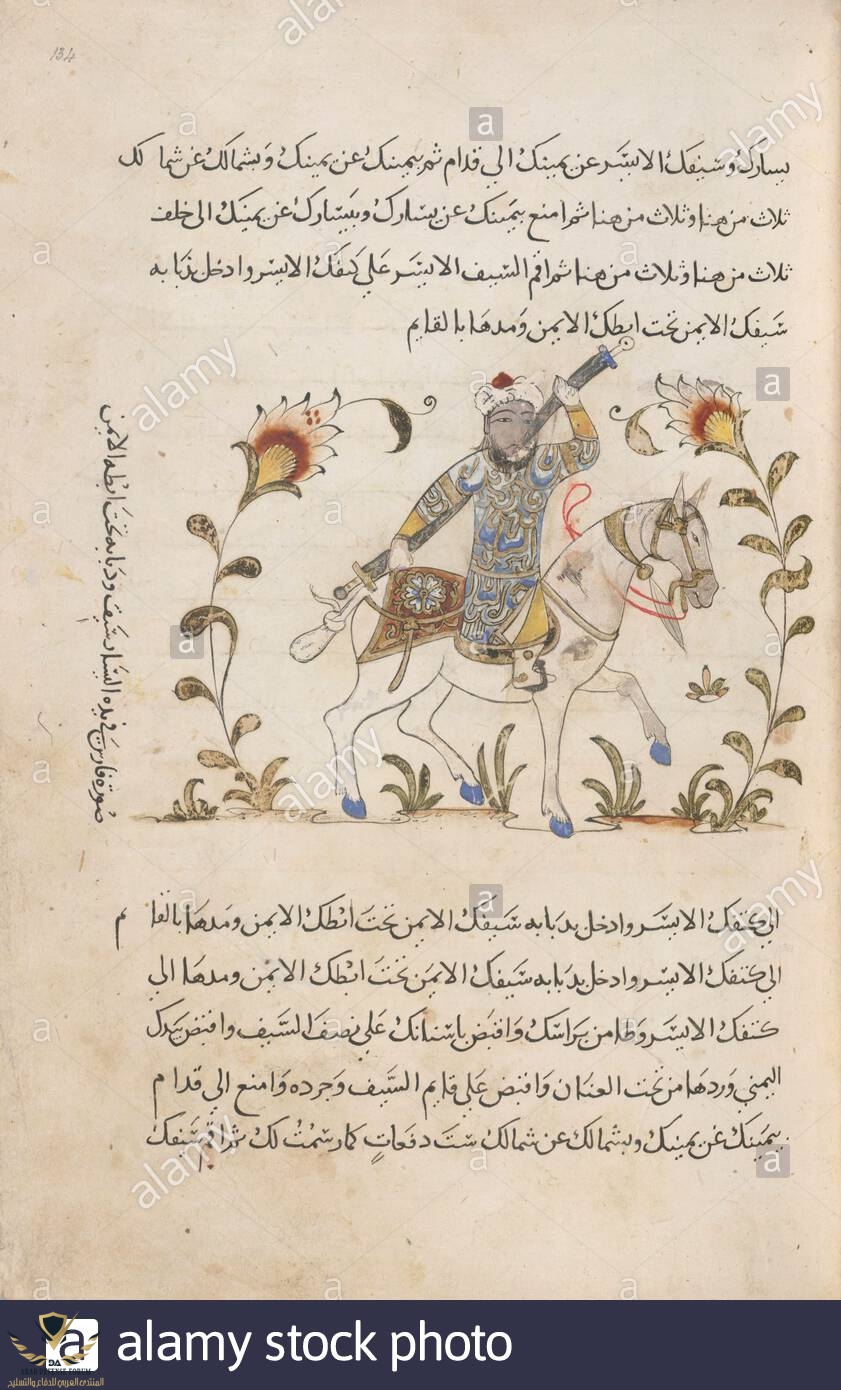 134
بيسارك وسيفك الايسر عن يمينك الي قدام ثم بيمينك عن يمينك وبشمالك عن شمالك
ثلاث من هنا وثلاث من هنا ثم امنع بيمينك عن يسارك وبيسارك عن يمينك الى خلف
ثلاث من هنا وثلاث من هنا ثم اقم السيف الايسر علي كتفك الايسر وادخل ذبابه
سيفك الايمن تحت ابطك الايمن ومدها بالقايم
صورة فارس في يده اليسار سيف ودبابه تحت ابطه الايمن
الي كتفك الايسر وادخل بدبابه سيفك الايمن تحت ابطك الايمن ومدها بالقام
الي كتفك الايسر وادخل بدبابه سيفك الايمن تحت ابطك الايمن ومدها الي
كتفك الايسر وطا من براسك واقبض باسنانك علي نصف السيف واقبض بيدك
اليمني وردها من تحت العنان واقبض علي قايم السيف وجرده وامنع الي قدام
بيمينك عن يمينك وبشمالك عن شمالك ست دفعات كما رسمت لك ثم اقم سيفك
alamy
a alamy stock photo
DA
المنتدى العربي للدفاع والتسليح